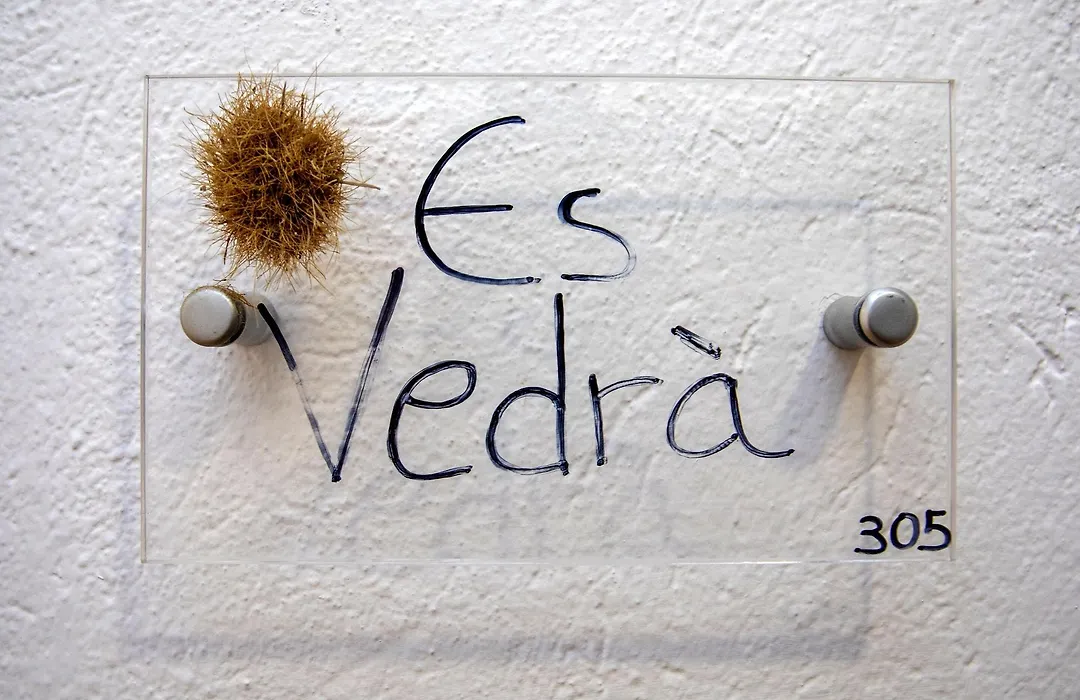 Es
Vedrà
305